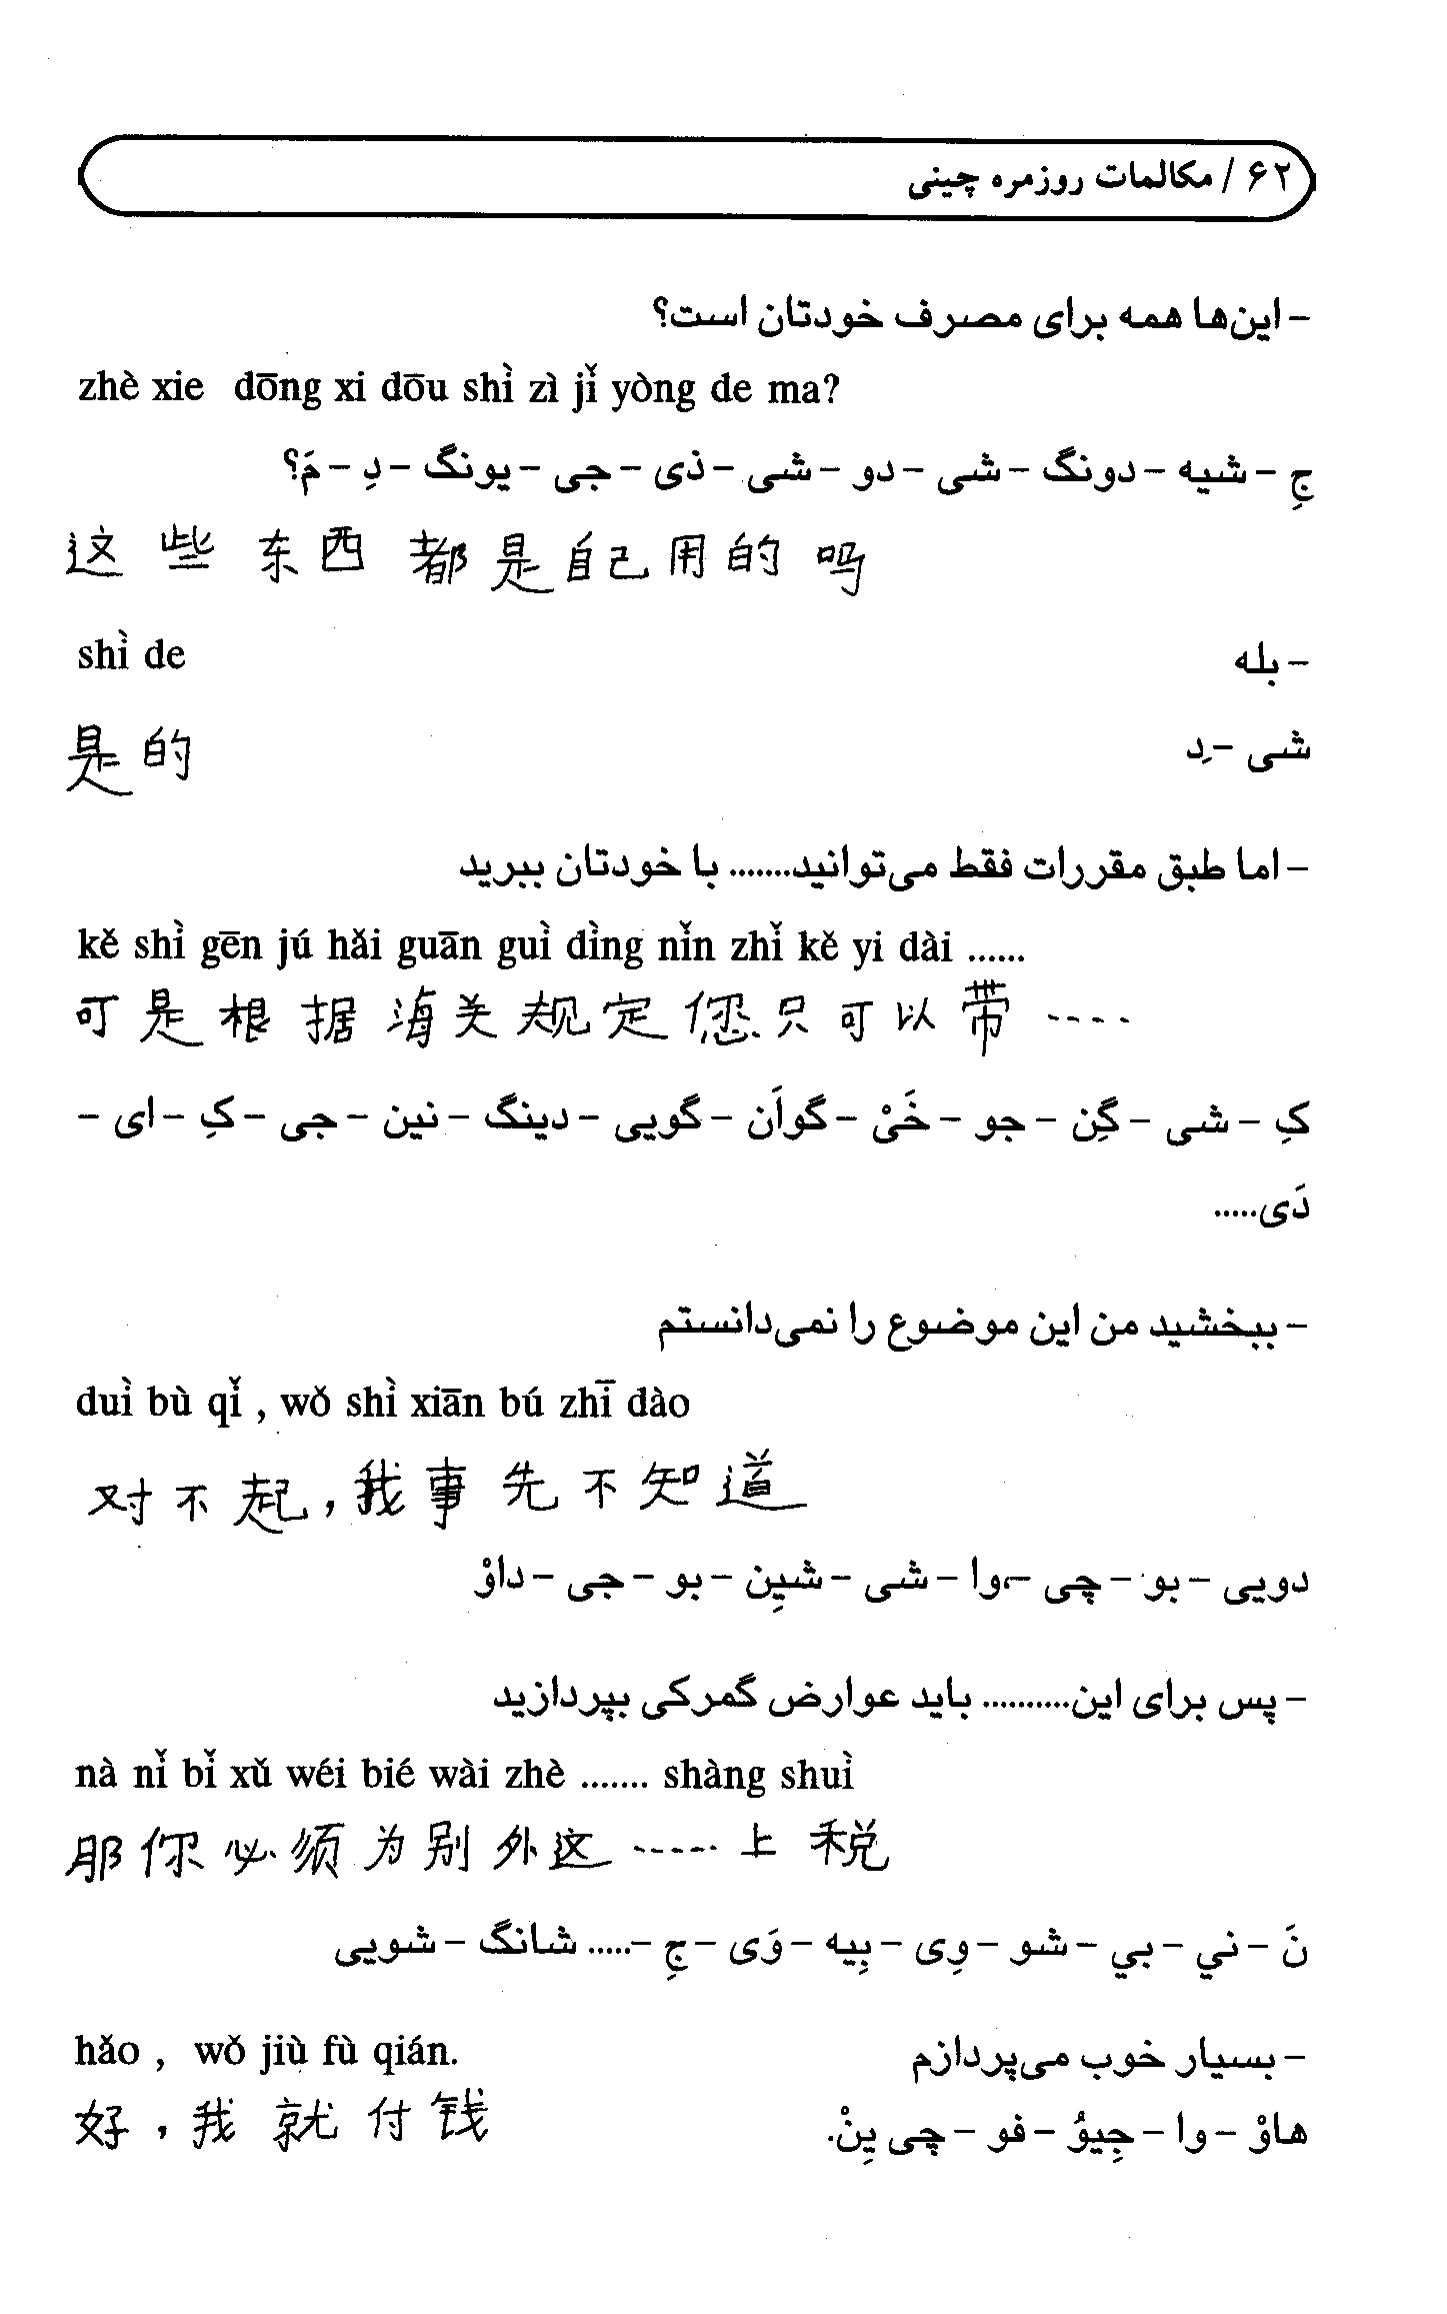 ۶۲ / مکالمات روزمره چینی
– این‌ها همه برای مصرف خودتان است؟
zhè xie dōng xi dōu shì zì jǐ yòng de ma?
جِ – شیه – دونگ – شی – دو – شی – ذی – جی – یونگ – دِ – مَ؟
这些东西都是自己用的吗
– بله
shì de
شی – دِ
是的
– اما طبق مقررات فقط می‌توانید....... با خودتان ببرید
kě shì gēn jú hǎi guān guì dìng nǐn zhǐ kě yi dài ......
可是根据海关规定您只可以带 ····
کِ – شی – گِن – جو – خَیْ – گوآن – گویی – دینگ – نین – جی – کِ – ای –
دَی.....
– ببخشید من این موضوع را نمی‌دانستم
duì bù qǐ , wǒ shì xiān bú zhī dào
对不起,我事先不知道
دویی – بو – چی – وا – شی – شیِن – بو – جی – داوْ
– پس برای این.......... باید عوارض گمرکی بپردازید
nà nǐ bǐ xǔ wéi bié wài zhè ....... shàng shuì
那你必须为别外这 ······ 上税
نَ – ني – بي – شو – وِی – بِیه – وَی – جِ –..... شانگ – شویی
– بسیار خوب می‌پردازم
hǎo , wǒ jiù fù qián.
هاوْ – وا – جِیوُ – فو – چی یِنْ.
好,我就付钱